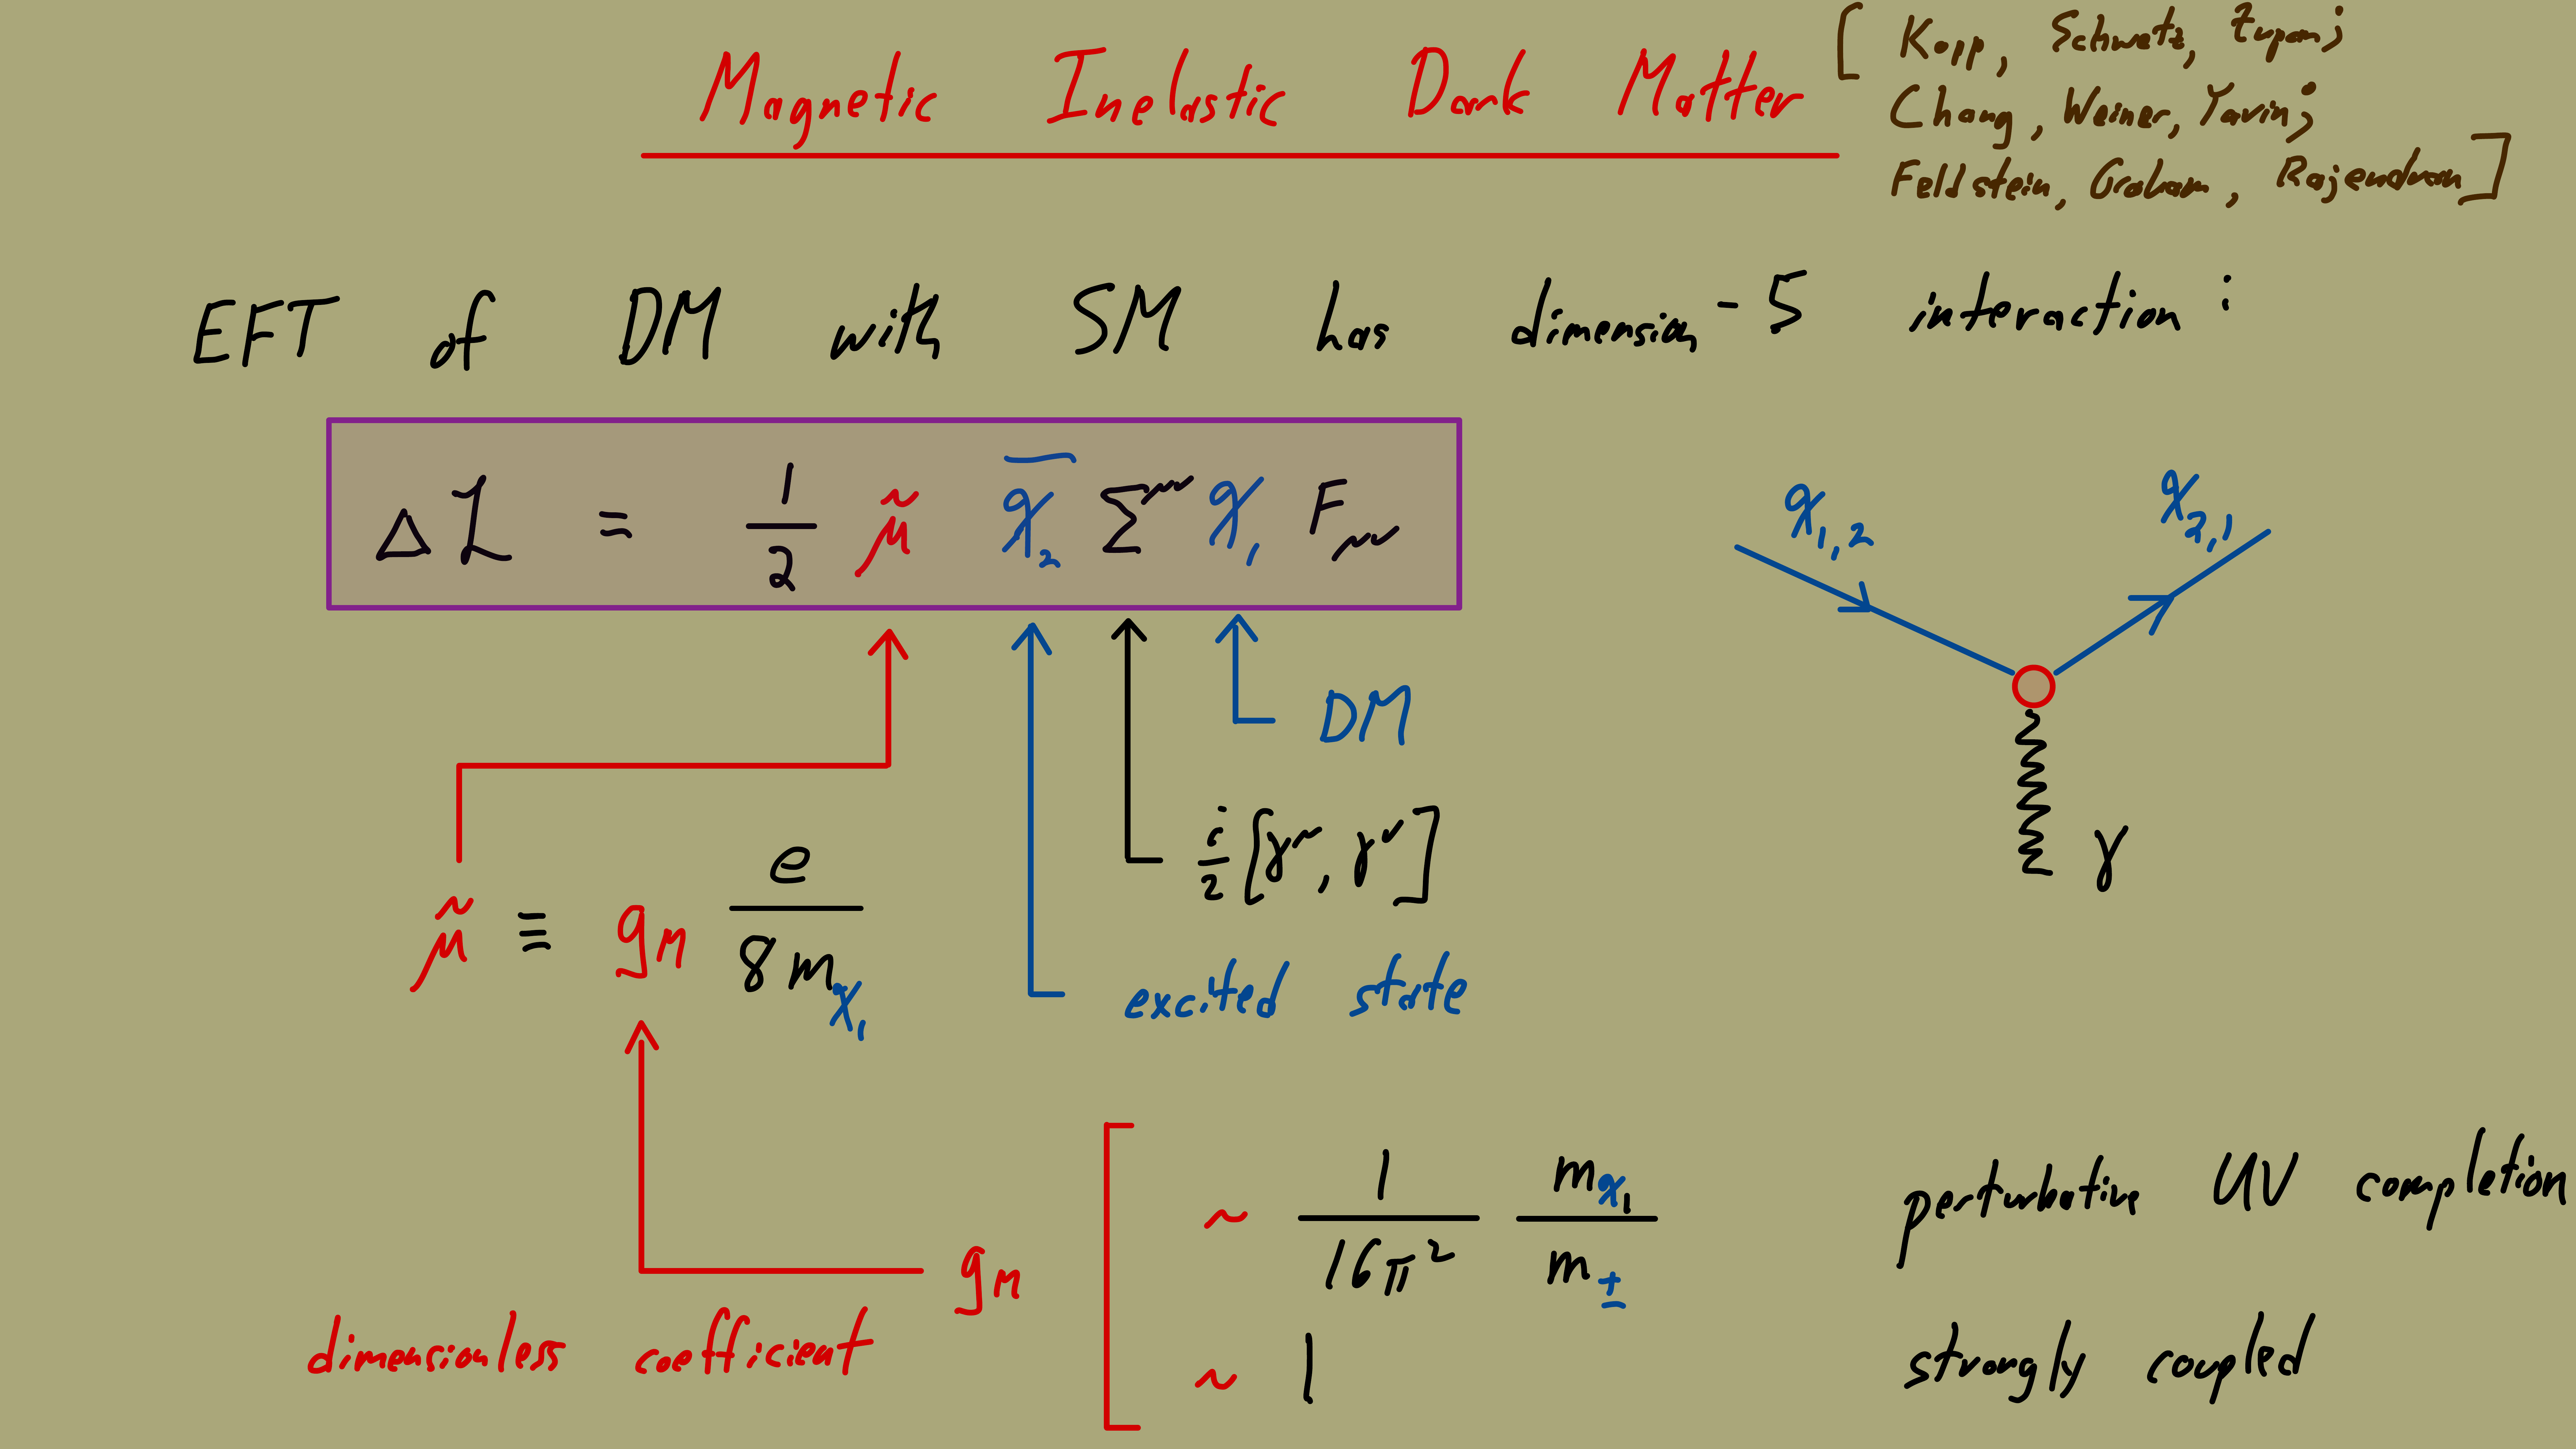 Magnetic Inelastic Dark Matter
[ Kopp, Schwetz, Zupan;
Chang, Weiner, Yavin;
Feldstein, Graham, Rajendran ]
EFT of DM with SM has dimension-5 interaction:
Δℒ = 1/2 μ̃ χ̄₂ Σ^μν χ₁ F_μν
χ₁,₂
χ₂,₁
γ
DM
i/2 [γ^μ, γ^ν]
excited state
μ̃ ≡ g_M e / 8m_χ₁
dimensionless coefficient
g_M
~ 1/16π² m_χ₁/m_± perturbative UV completion
~ 1 strongly coupled